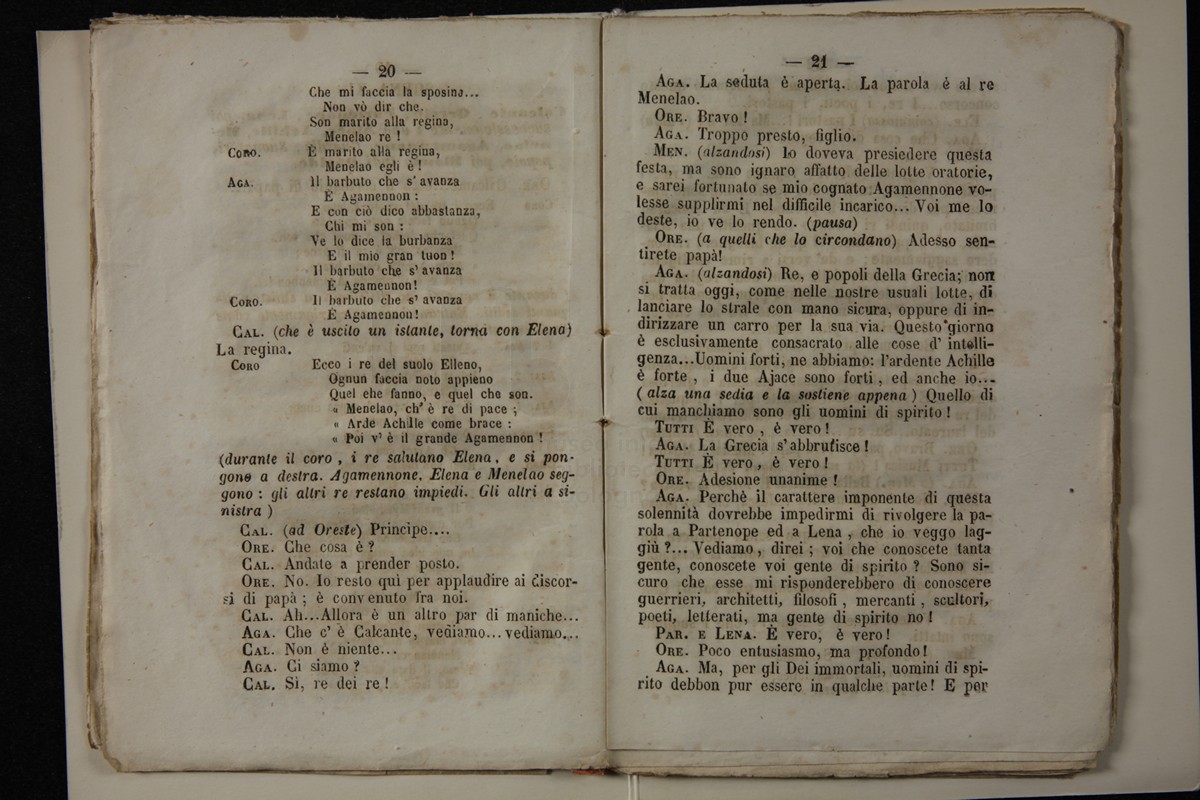 — 20 —
Che mi faccia la sposina...
Non vò dir che.
Son marito alla regina,
Menelao re !
CORO. È marito alla regina,
Menelao egli è !
AGA. Il barbuto che s' avanza
È Agamennon :
E con ciò dico abbastanza,
Chi mi son :
Ve lo dice la burbanza
E il mio gran tuon !
Il barbuto che s' avanza
È Agamennon!
CORO. Il barbuto che s' avanza
È Agamennon!
CAL. (che è uscito un istante, torna con Elena)
La regina.
CORO Ecco i re del suolo Elleno,
Ognun faccia noto appieno
Quel che fanno, e quel che son.
« Menelao, ch' è re di pace ;
« Arde Achille come brace :
« Poi v' è il grande Agamennon !
(durante il coro , i re salutano Elena, e si pon-
gono a destra. Agamennone, Elena e Menelao seg-
gono : gli altri re restano impiedi. Gli altri a si-
nistra )
CAL. (ad Oreste) Principe....
ORE. Che cosa è ?
CAL. Andate a prender posto.
ORE. No. Io resto qui per applaudire ai discor-
si di papà ; è convenuto fra noi.
CAL. Ah...Allora è un altro par di maniche...
AGA. Che c' è Calcante, vediamo...vediamo...
CAL. Non è niente...
AGA. Ci siamo ?
CAL. Si, re dei re !
— 21 —
AGA. La seduta è aperta. La parola è al re
Menelao.
ORE. Bravo !
AGA. Troppo presto, figlio.
MEN. (alzandosi) Io doveva presiedere questa
festa, ma sono ignaro affatto delle lotte oratorie,
e sarei fortunato se mio cognato Agamennone vo-
lesse supplirmi nel difficile incarico... Voi me lo
deste, io ve lo rendo. (pausa)
ORE. (a quelli che lo circondano) Adesso sen-
tirete papà!
AGA. (alzandosi) Re, e popoli della Grecia; non
si tratta oggi, come nelle nostre usuali lotte, di
lanciare lo strale con mano sicura, oppure di in-
dirizzare un carro per la sua via. Questo giorno
è esclusivamente consacrato alle cose d' intelli-
genza...Uomini forti, ne abbiamo: l'ardente Achille
è forte , i due Ajace sono forti , ed anche io...
( alza una sedia e la sostiene appena ) Quello di
cui manchiamo sono gli uomini di spirito !
TUTTI È vero , è vero !
AGA. La Grecia s' abbrutisce !
TUTTI È vero , è vero !
ORE. Adesione unanime !
AGA. Perchè il carattere imponente di questa
solennità dovrebbe impedirmi di rivolgere la pa-
rola a Partenope ed a Lena , che io veggo lag-
giù ?... Vediamo , direi ; voi che conoscete tanta
gente, conoscete voi gente di spirito ? Sono si-
curo che esse mi risponderebbero di conoscere
guerrieri, architetti, filosofi , mercanti , scultori,
poeti, letterati, ma gente di spirito no !
PAR. E LENA. È vero, è vero !
ORE. Poco entusiasmo, ma profondo !
AGA. Ma, per gli Dei immortali, uomini di spi-
rito debbon pur essere in qualche parte! E per